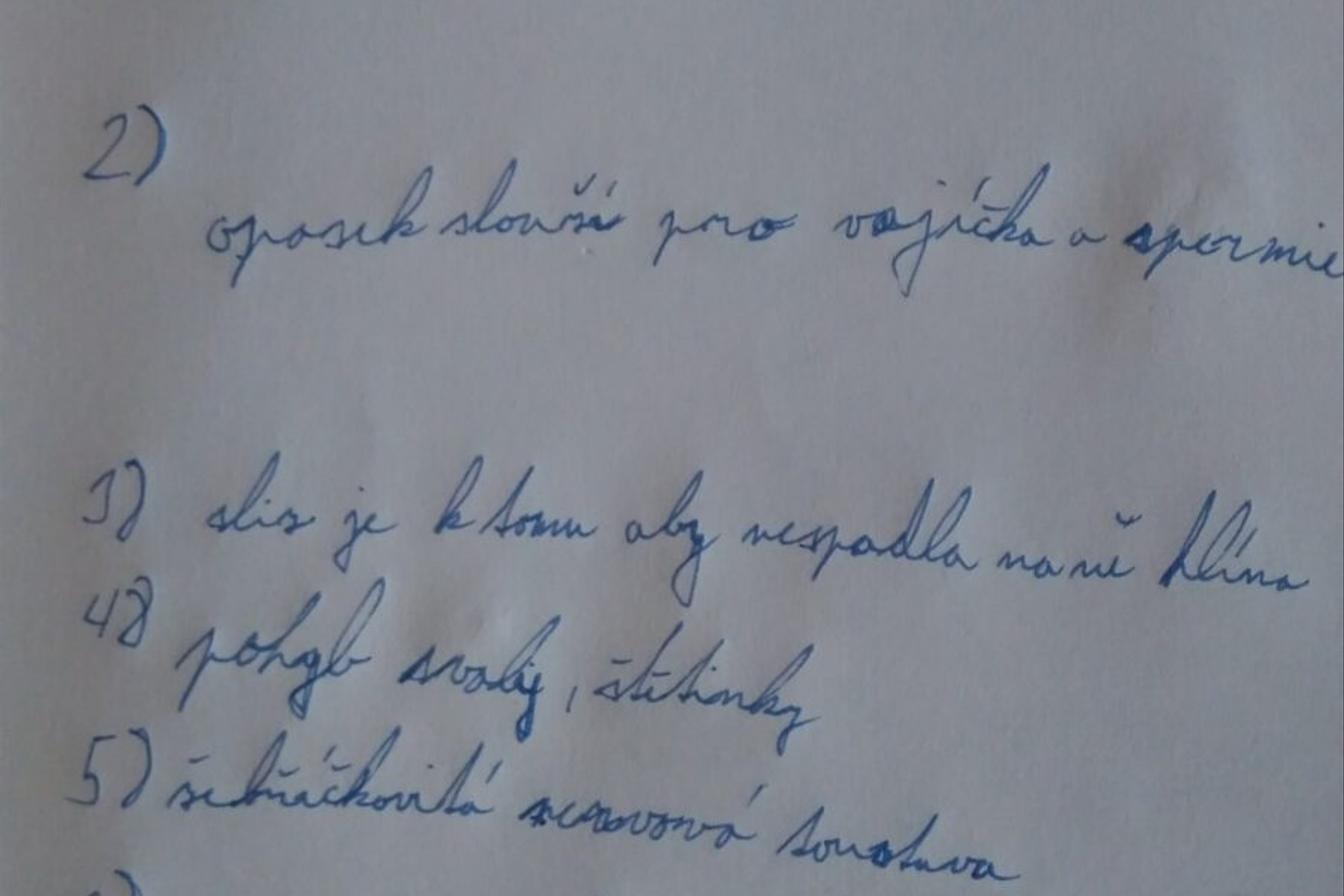 2)
opasek slouží pro vajíčka a spermie
3) sliz je k tomu aby nespadla na ně hlína
4) pohyb svaly, štětinky
5) žebříčkovitá nervová soustava